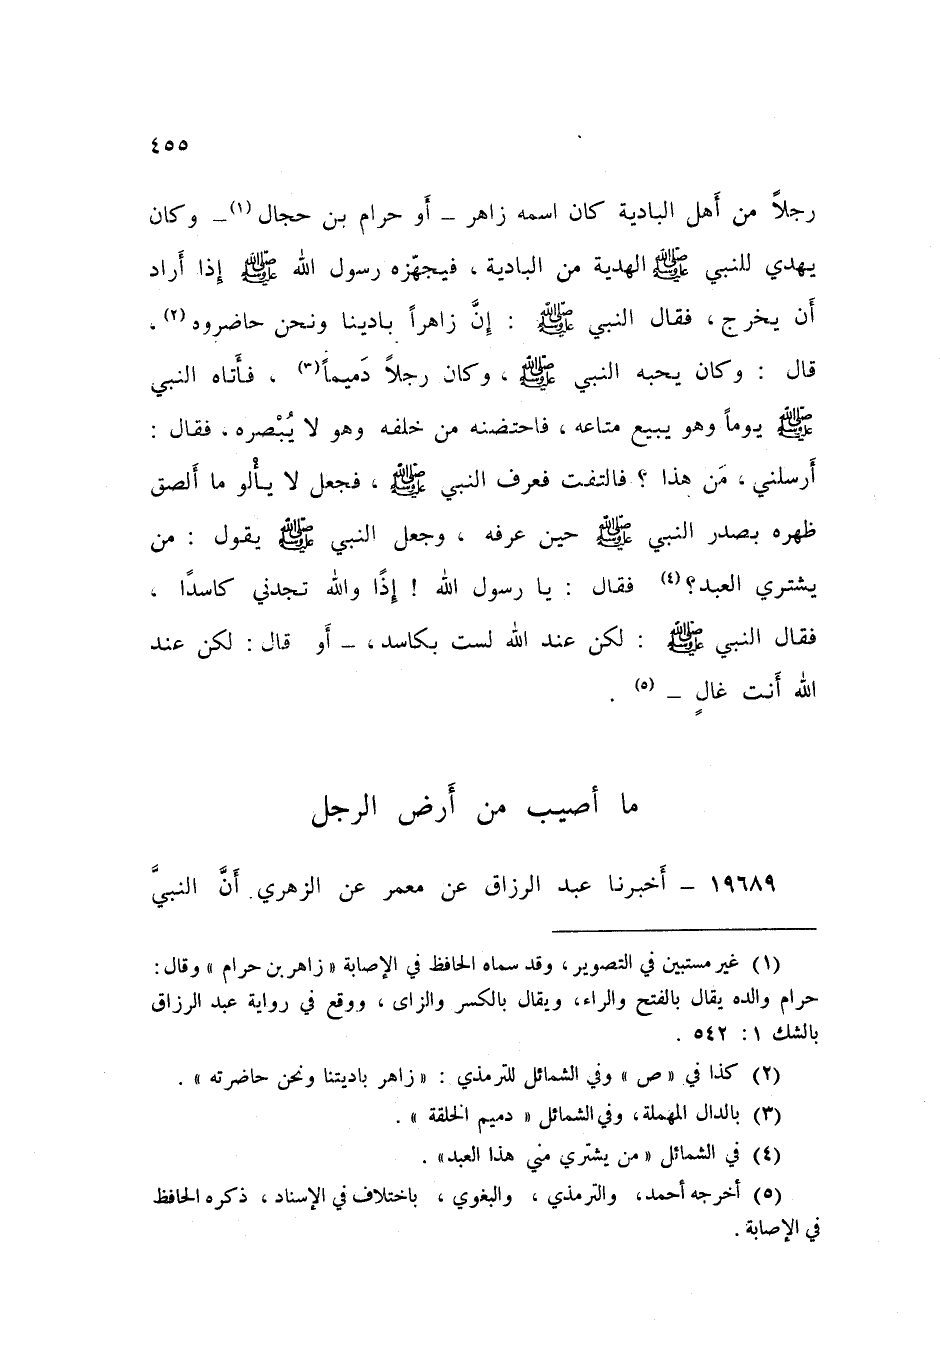 ٤٥٥
رجلاً من أَهل البادية كان اسمه زاهر – أَو حرام بن حجال (١) – وكان
يهدي للنبي ﷺ الهدية من البادية ، فيجهّزه رسول الله ﷺ إِذا أَراد
أَن يخرج ، فقال النبي ﷺ : إِنَّ زاهراً بادينا ونحن حاضروه (٢) .
قال : وكان يحبه النبي ﷺ ، وكان رجلاً دَميماً (٣) ، فأَتاه النبي
ﷺ يوماً وهو يبيع متاعه ، فاحتضنه من خلفه وهو لا يُبْصره ، فقال :
أَرسلني ، مَن هذا ؟ فالتفت فعرف النبي ﷺ ، فجعل لا يأْلو ما أَلصق
ظهره بصدر النبي ﷺ حين عرفه ، وجعل النبي ﷺ يقول : من
يشتري العبد؟ (٤) فقال : يا رسول الله ! إِذًا والله تجدني كاسدًا ،
فقال النبي ﷺ : لكن عند الله لست بكاسد ، – أَو قال : لكن عند
الله أَنت غالٍ – (٥) .
ما أصيب من أَرض الرجل
١٩٦٨٩ – أَخبرنا عبد الرزاق عن معمر عن الزهري أَنَّ النبيَّ
(١) غير مستبين في التصوير ، وقد سماه الحافظ في الإصابة « زاهر بن حرام » وقال :
حرام والده يقال بالفتح والراء، ويقال بالكسر والزاى ، ووقع في رواية عبد الرزاق
بالشك ١ : ٥٤٢ .
(٢) كذا في « ص » وفي الشمائل للترمذي : « زاهر باديتنا ونحن حاضرته » .
(٣) بالدال المهملة، وفي الشمائل « دميم الخلقة » .
(٤) في الشمائل « من يشتري مني هذا العبد» .
(٥) أخرجه أحمد، والترمذي ، والبغوي ، باختلاف في الإسناد ، ذكره الحافظ
في الإصابة .